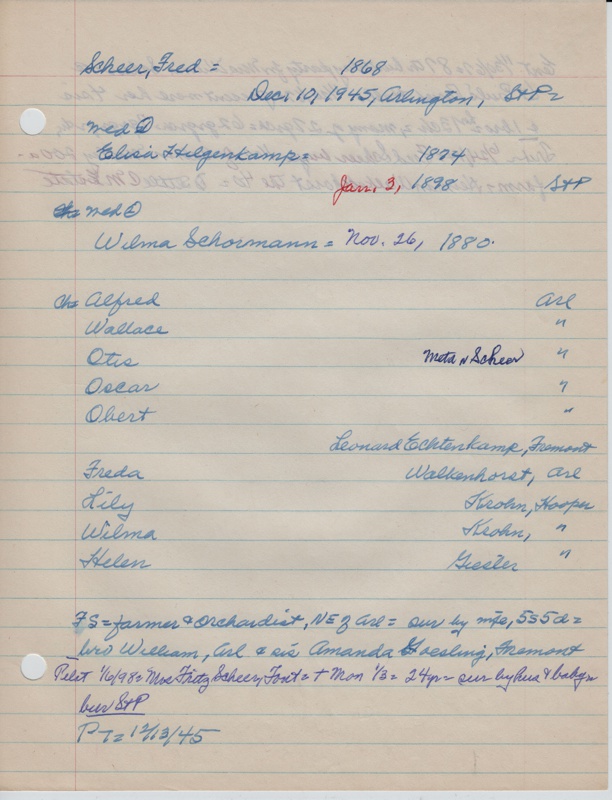 Scheer, Fred = 1868
Dec. 10, 1945, Arlington, StP=
med ①
Elisa Hilgenkamp = 1874
Jan. 3, 1898 StP
med ②
Wilma Schormann = Nov. 26, 1880.
ch= Alfred Arl
Wallace "
Otis Meta N Scheer "
Oscar "
Obert "
Leonard Echtenkamp, Fremont
Freda Walkenhorst, Arl
Lily Krohn, Hooper
Wilma Krohn, "
Helen Giesler "
FS = farmer & orchardist, NE of Arl = sur by wife, 5s 5d =
bro William, Arl & sis Amanda Goesling, Fremont
Pilot 1/6/98 = Mrs Fritz Scheer, Font = + Mon 1/3 = 24yr = sur by hus & baby =
bur StP
PT = 12/13/45